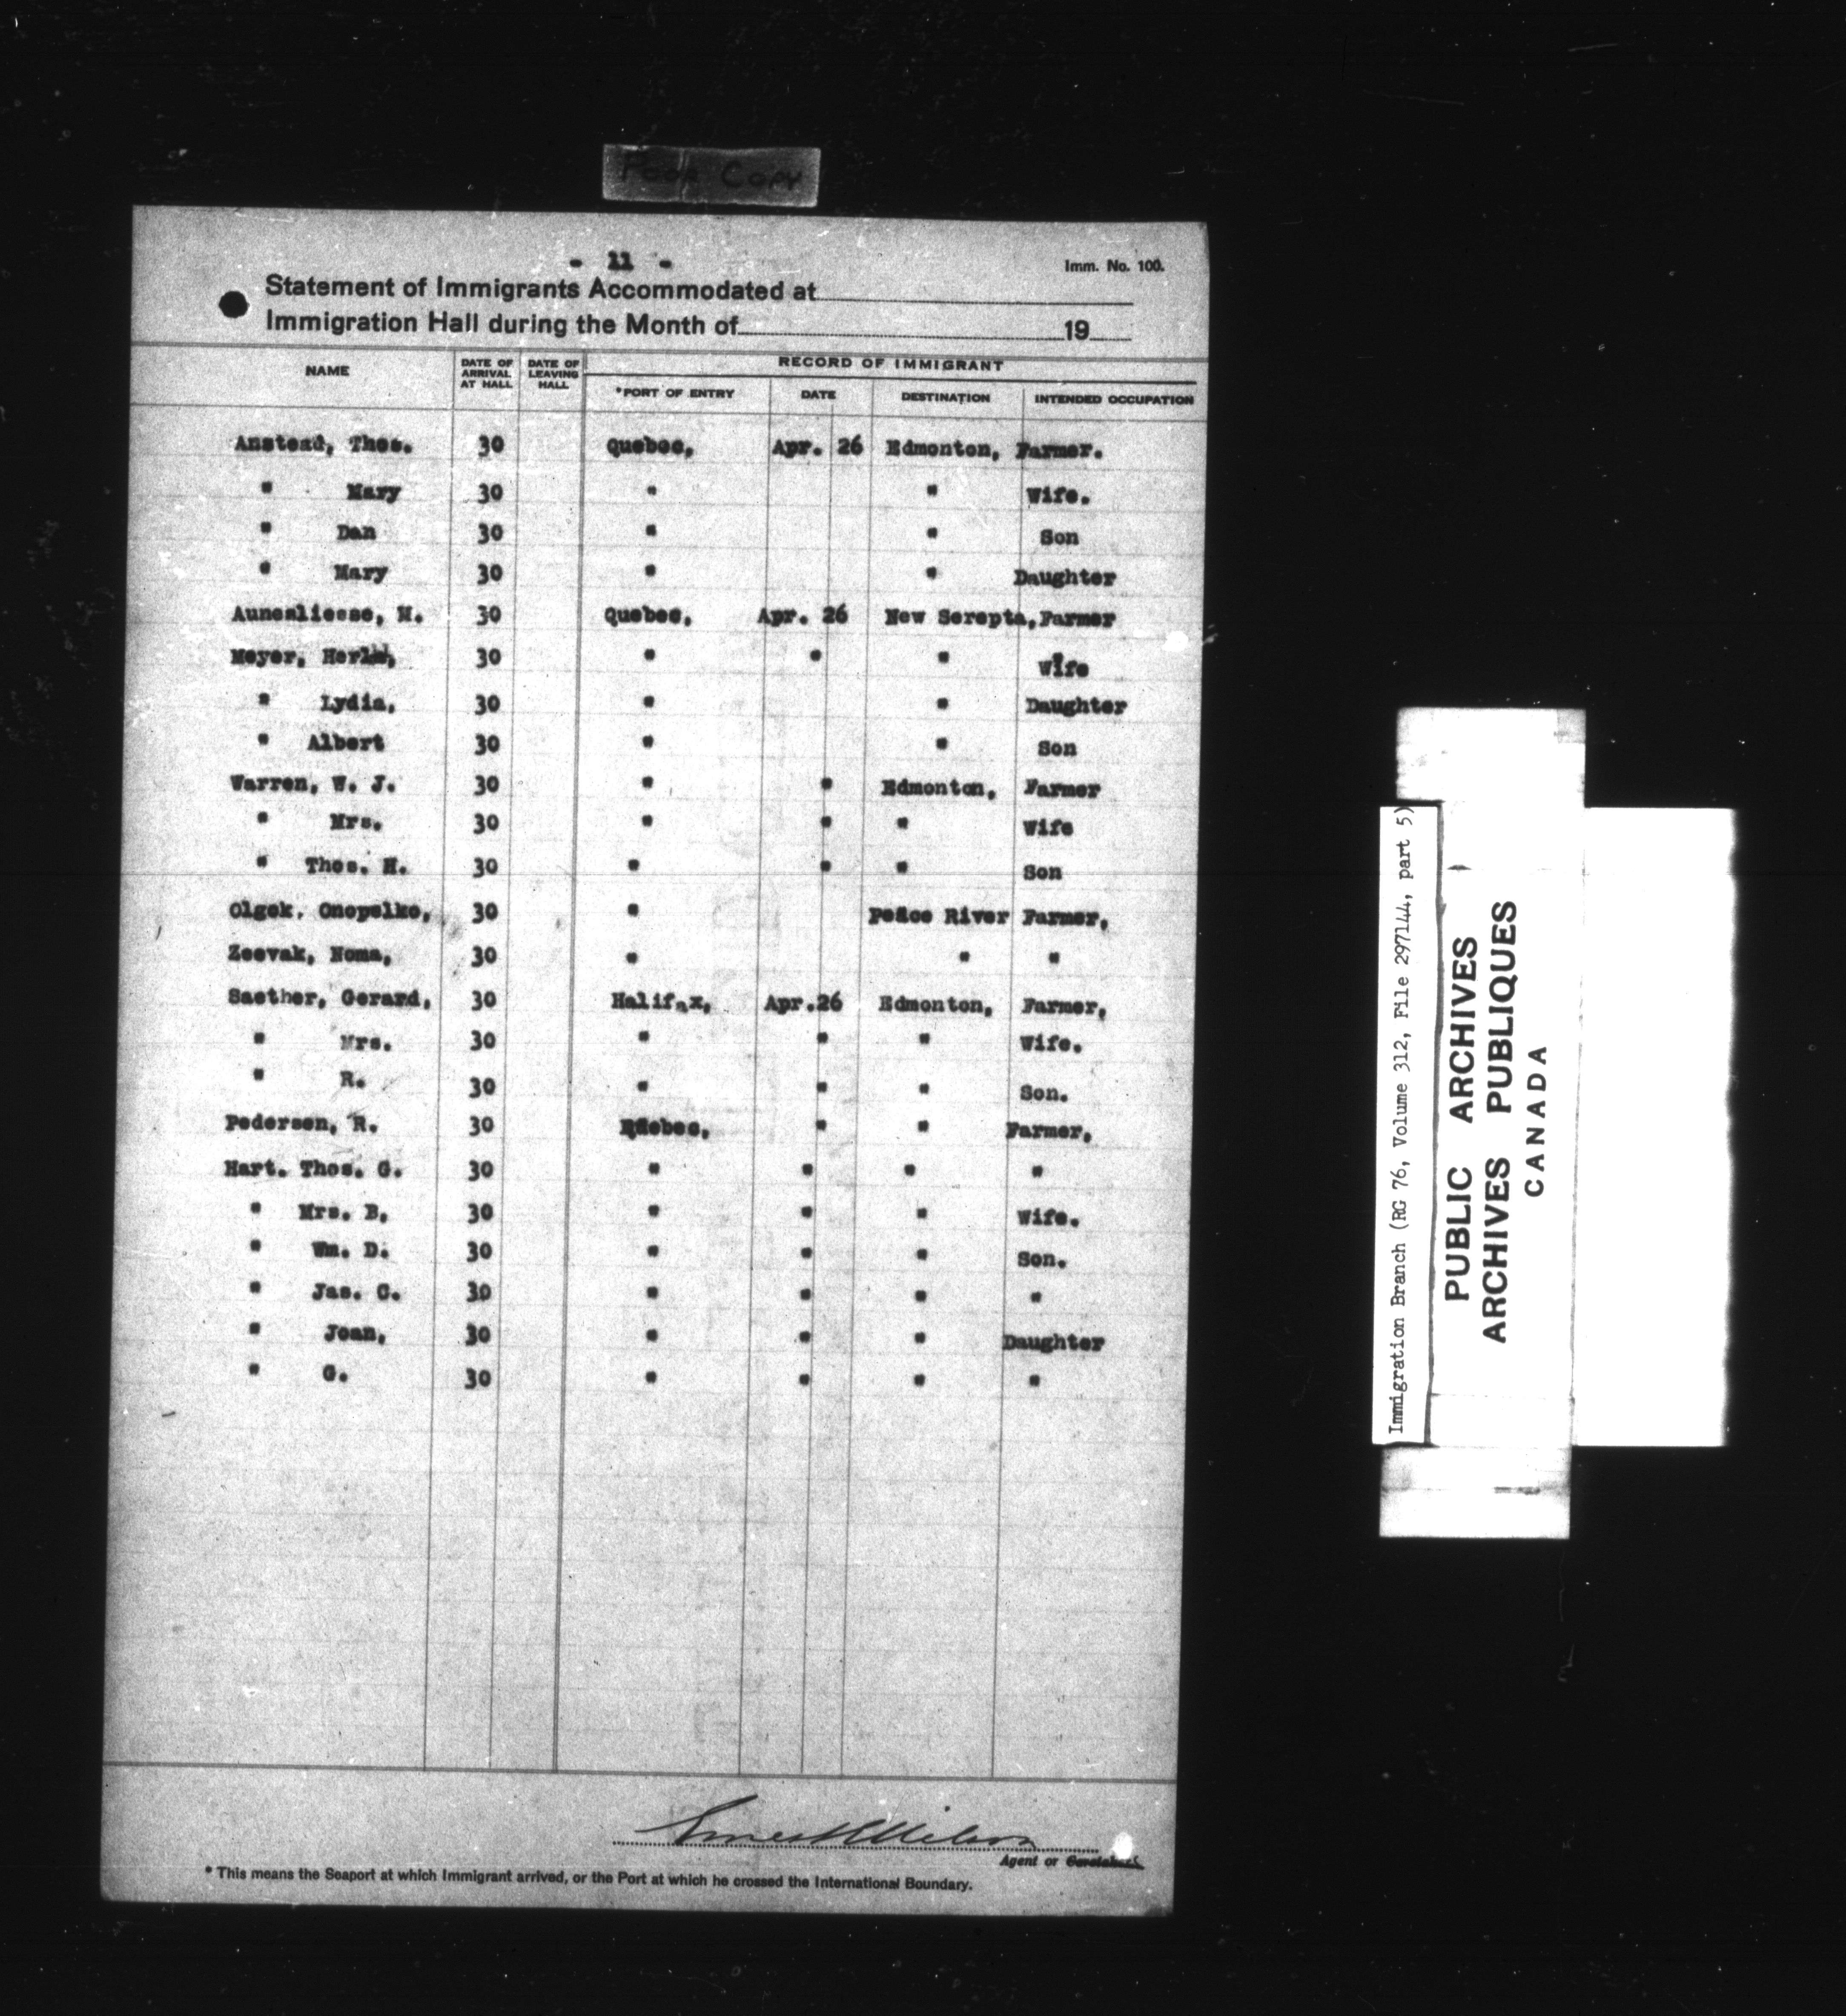 Poor Copy
- 11 -
Imm. No. 100.
Statement of Immigrants Accommodated at
Immigration Hall during the Month of 19
NAME DATE OF ARRIVAL AT HALL DATE OF LEAVING HALL RECORD OF IMMIGRANT
*PORT OF ENTRY DATE DESTINATION INTENDED OCCUPATION
Anstead, Thos. 30 Quebec, Apr. 26 Edmonton, Farmer.
" Mary 30 " " Wife.
" Dan 30 " " Son
" Mary 30 " " Daughter
Aunealiesse, M. 30 Quebec, Apr. 26 New Serepta, Farmer
Meyer, 30 " " " Wife
" Lydia, 30 " " Daughter
" Albert 30 " " Son
Warren, W. J. 30 " " Edmonton, Farmer
" Mrs. 30 " " " Wife
" Thos. H. 30 " " " Son
Olgek. Onopelko, 30 " Peace River Farmer,
Zeevak, Homa, 30 " " "
Saether, Gerard, 30 Halifax, Apr.26 Edmonton, Farmer,
" Mrs. 30 " " " Wife.
" R. 30 " " " Son.
Pedersen, R. 30 Quebec, " " Farmer,
Hart. Thos. G. 30 " " " "
" Mrs. B, 30 " " " Wife.
" Wm. D. 30 " " " Son.
" Jas. C. 30 " " " "
" Joan, 30 " " " Daughter
" G. 30 " " " "
Agent or Caretaker
* This means the Seaport at which Immigrant arrived, or the Port at which he crossed the International Boundary.
Immigration Branch (RG 76, Volume 312, File 297144, part 5)
PUBLIC ARCHIVES
ARCHIVES PUBLIQUES
CANADA